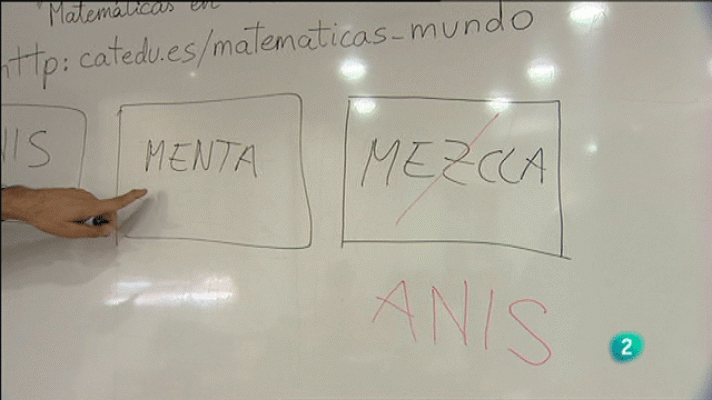 "Matemáticas en
http: catedu.es/matematicas_mundo
NIS MENTA MEZCLA
ANIS
2